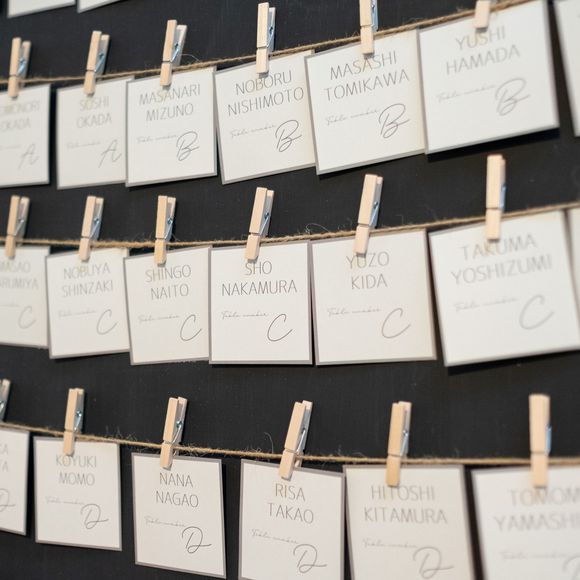 OKADA
A
SUSHI
OKADA
Table number
A
MASANARI
MIZUNO
Table number
B
NOBORU
NISHIMOTO
Table number
B
MASASHI
TOMIKAWA
Table number
B
YUSHI
HAMADA
Table number
B
MASAO
C
NOBUYA
SHINZAKI
Table number
C
SHINGO
NAITO
Table number
C
SHO
NAKAMURA
Table number
C
YUZO
KIDA
Table number
C
TAKUMA
YOSHIZUMI
Table number
C
D
KOYUKI
MOMO
Table number
D
NANA
NAGAO
Table number
D
RISA
TAKAO
Table number
D
HITOSHI
KITAMURA
Table number
D
Table number
D